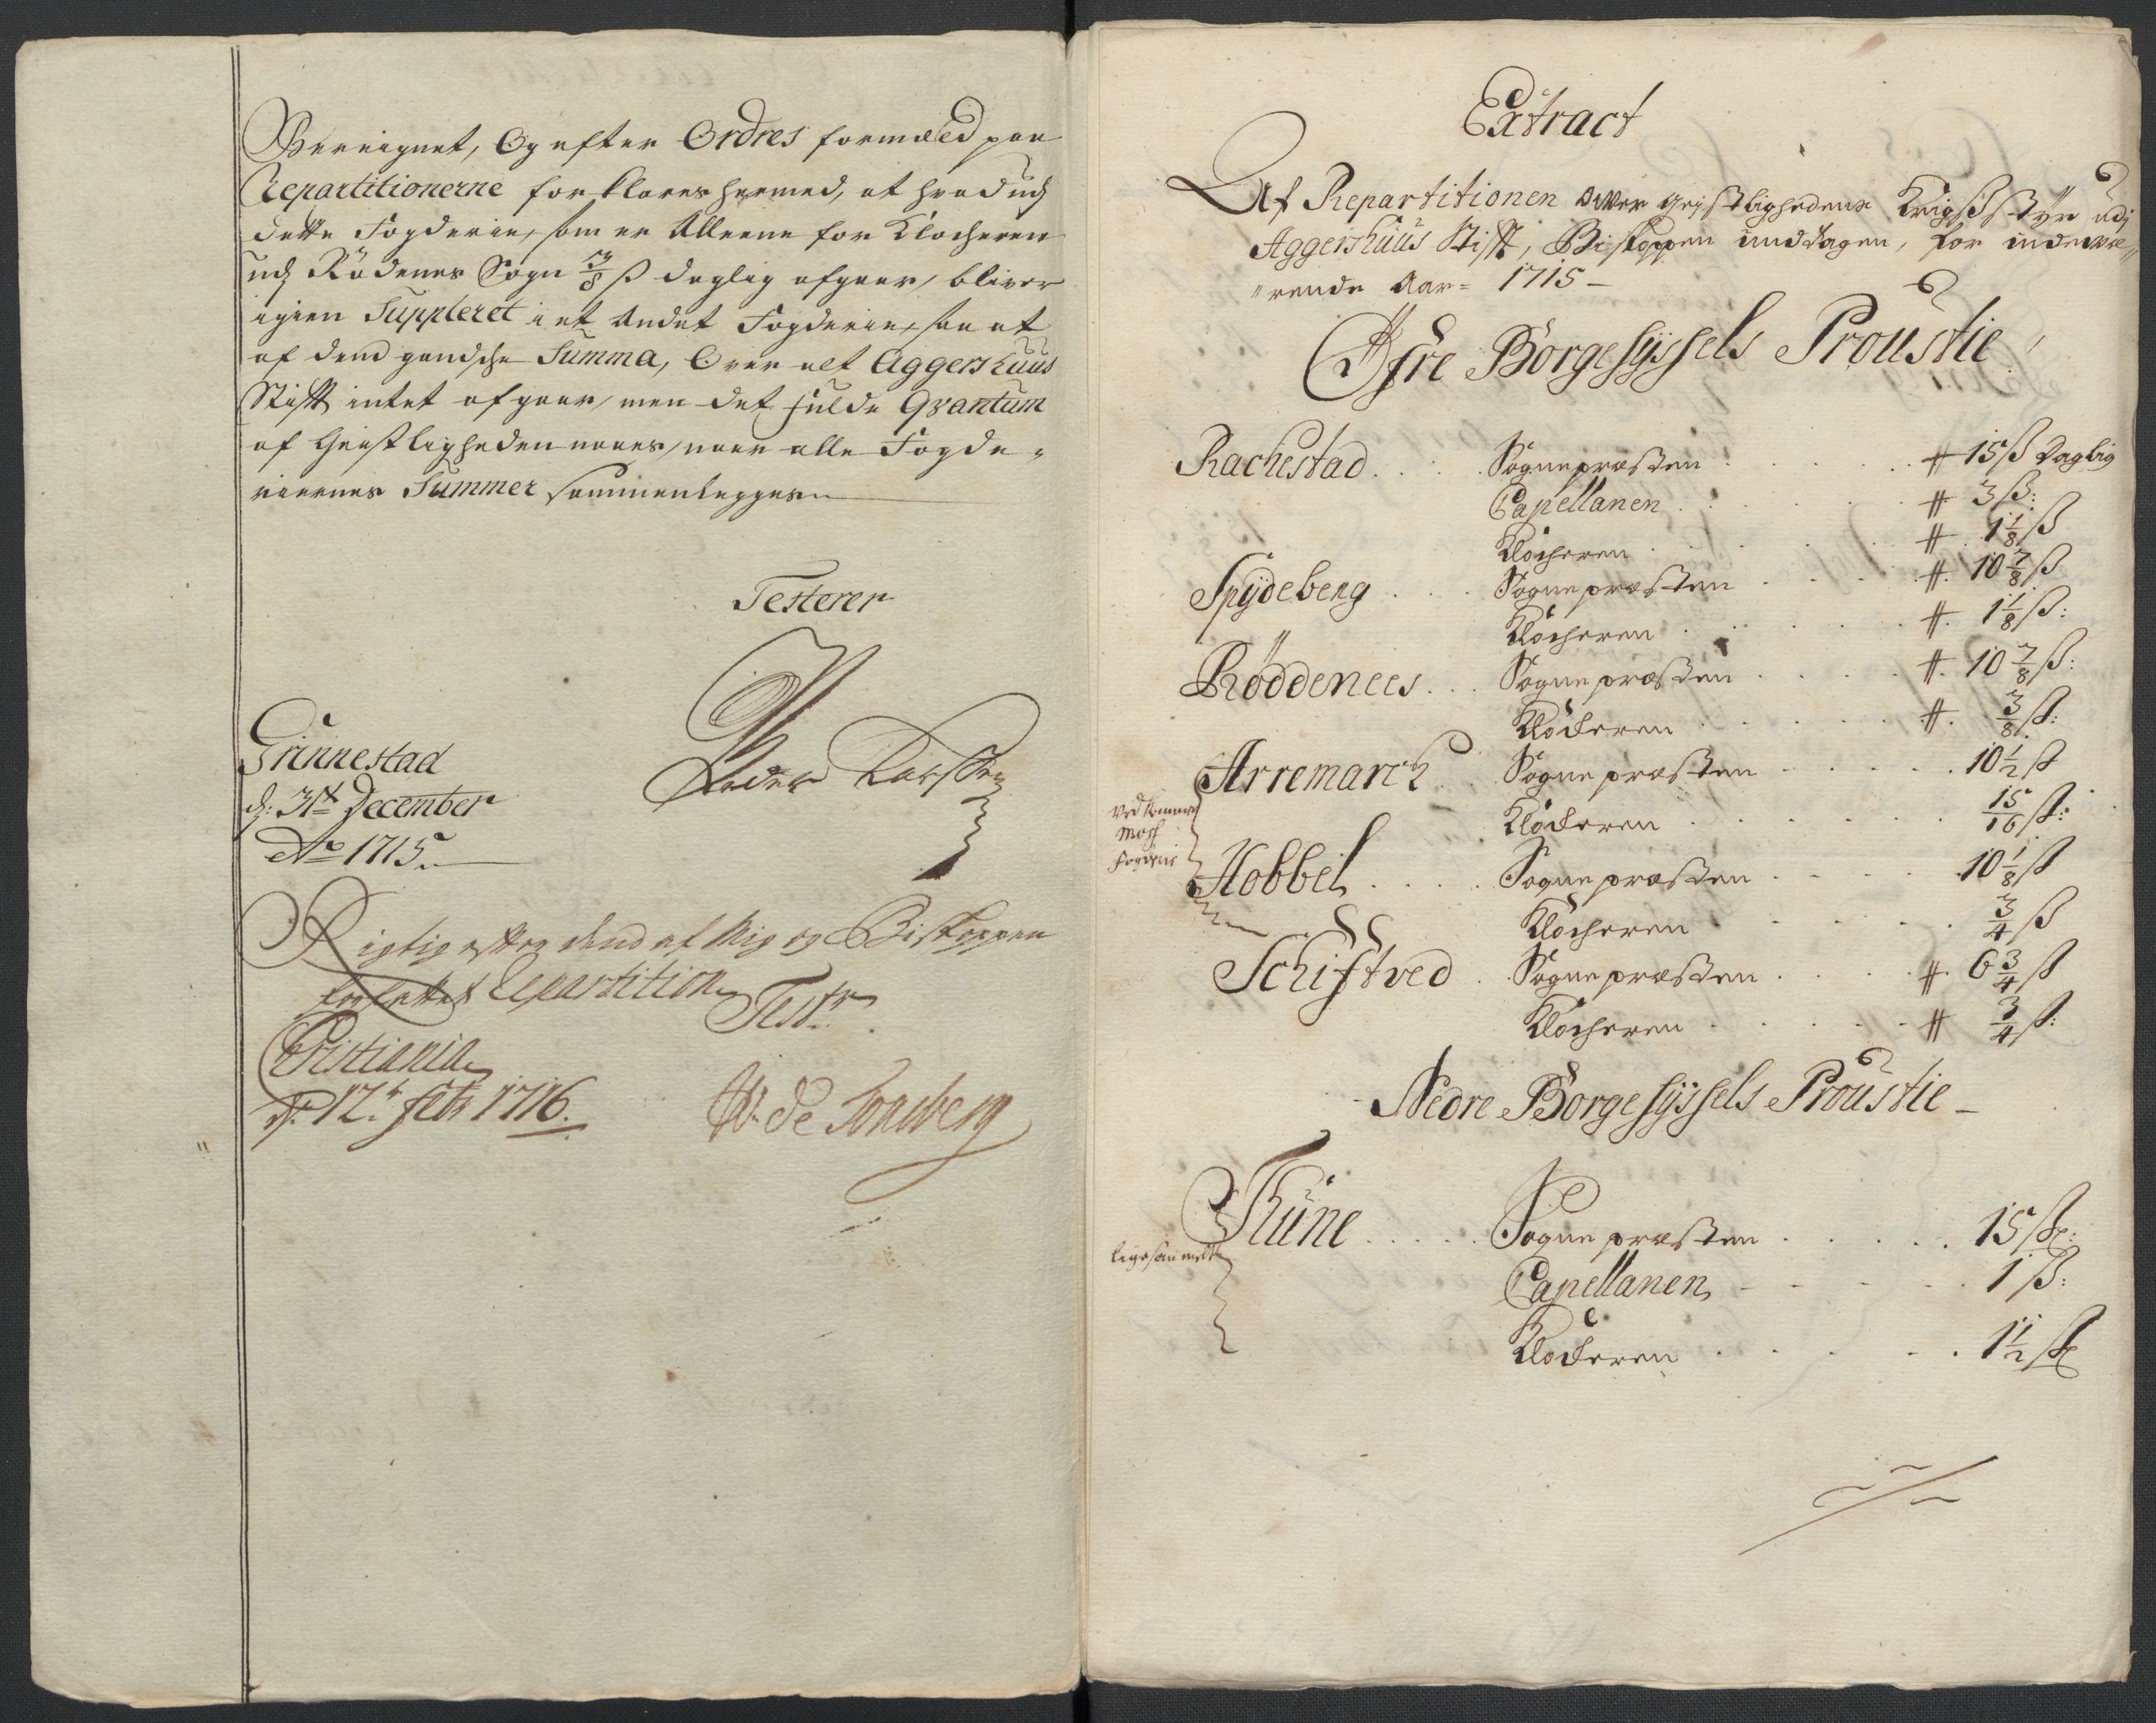 Bereignet, Og efter Ordres formæled paa
Repartitionerne forklares hermed, at hvad udj
dette Fogderie, som er Alleene for Klocheren
udj Rödenes Sogn 3/8 ß daglig afgaar, bliver
igien Suppleret i et Andet Fogderie, saa at
af dend gandsche Summa, Over alt Aggershuus
Stift intet afgaar, men det fulde Qvantum
af Geistligheden naaes, naar alle Fogde-
riernes Summer sammenlegges
Testerer
Grinnestad
d: 31te December
Ao 1715
Peder Larssen
Rigtig efter dend af Mig og Biskoppen
forfattet Repartition
Test
Cristiania
d. 12t feb 1716.
W. de Tonsberg
Extract
Af Repartitionen over geistlighedens Krigsstÿr udj
Aggershuus Stift, Biskoppen undtagen, for indevæ-
"rende Aar= 1715 -
Öfre Borgesÿssels Proustie
Rachestad . . . . Sognepræsten . . . . # 15 ß daglig
Capellanen . . . . # 3 ß:
Klocheren . . . . # 1 1/8 ß
Spÿdeberg . . . Sognepræsten . . . . # 10 7/8 ß
Klocheren . . . . # 1 1/8 ß:
Röddenees . . . Sognepræsten . . . . # 10 7/8 ß:
Klockeren . . . . # 3/8 ß:
Arremarch . . Sognepræsten . . . . 10 1/2 ß
Ved kommer
Moss
Fogderie
Klockeren . . . . 15/16 ß:
Hobbel . . . . Sognepræsten . . . . 10 1/8 ß
Klocheren . . . . 3/4 ß
Schiftved . . Sognepræsten . . . . # 6 3/4 ß
Klocheren . . . . # 3/4 ß:
Nedre Borgesÿssels Proustie -
Thune . . . . . Sognepræsten . . . . 15 ß:
ligesaa
Capellanen . . . . 1 ß:
Klockeren . . . . 1 1/2 ß